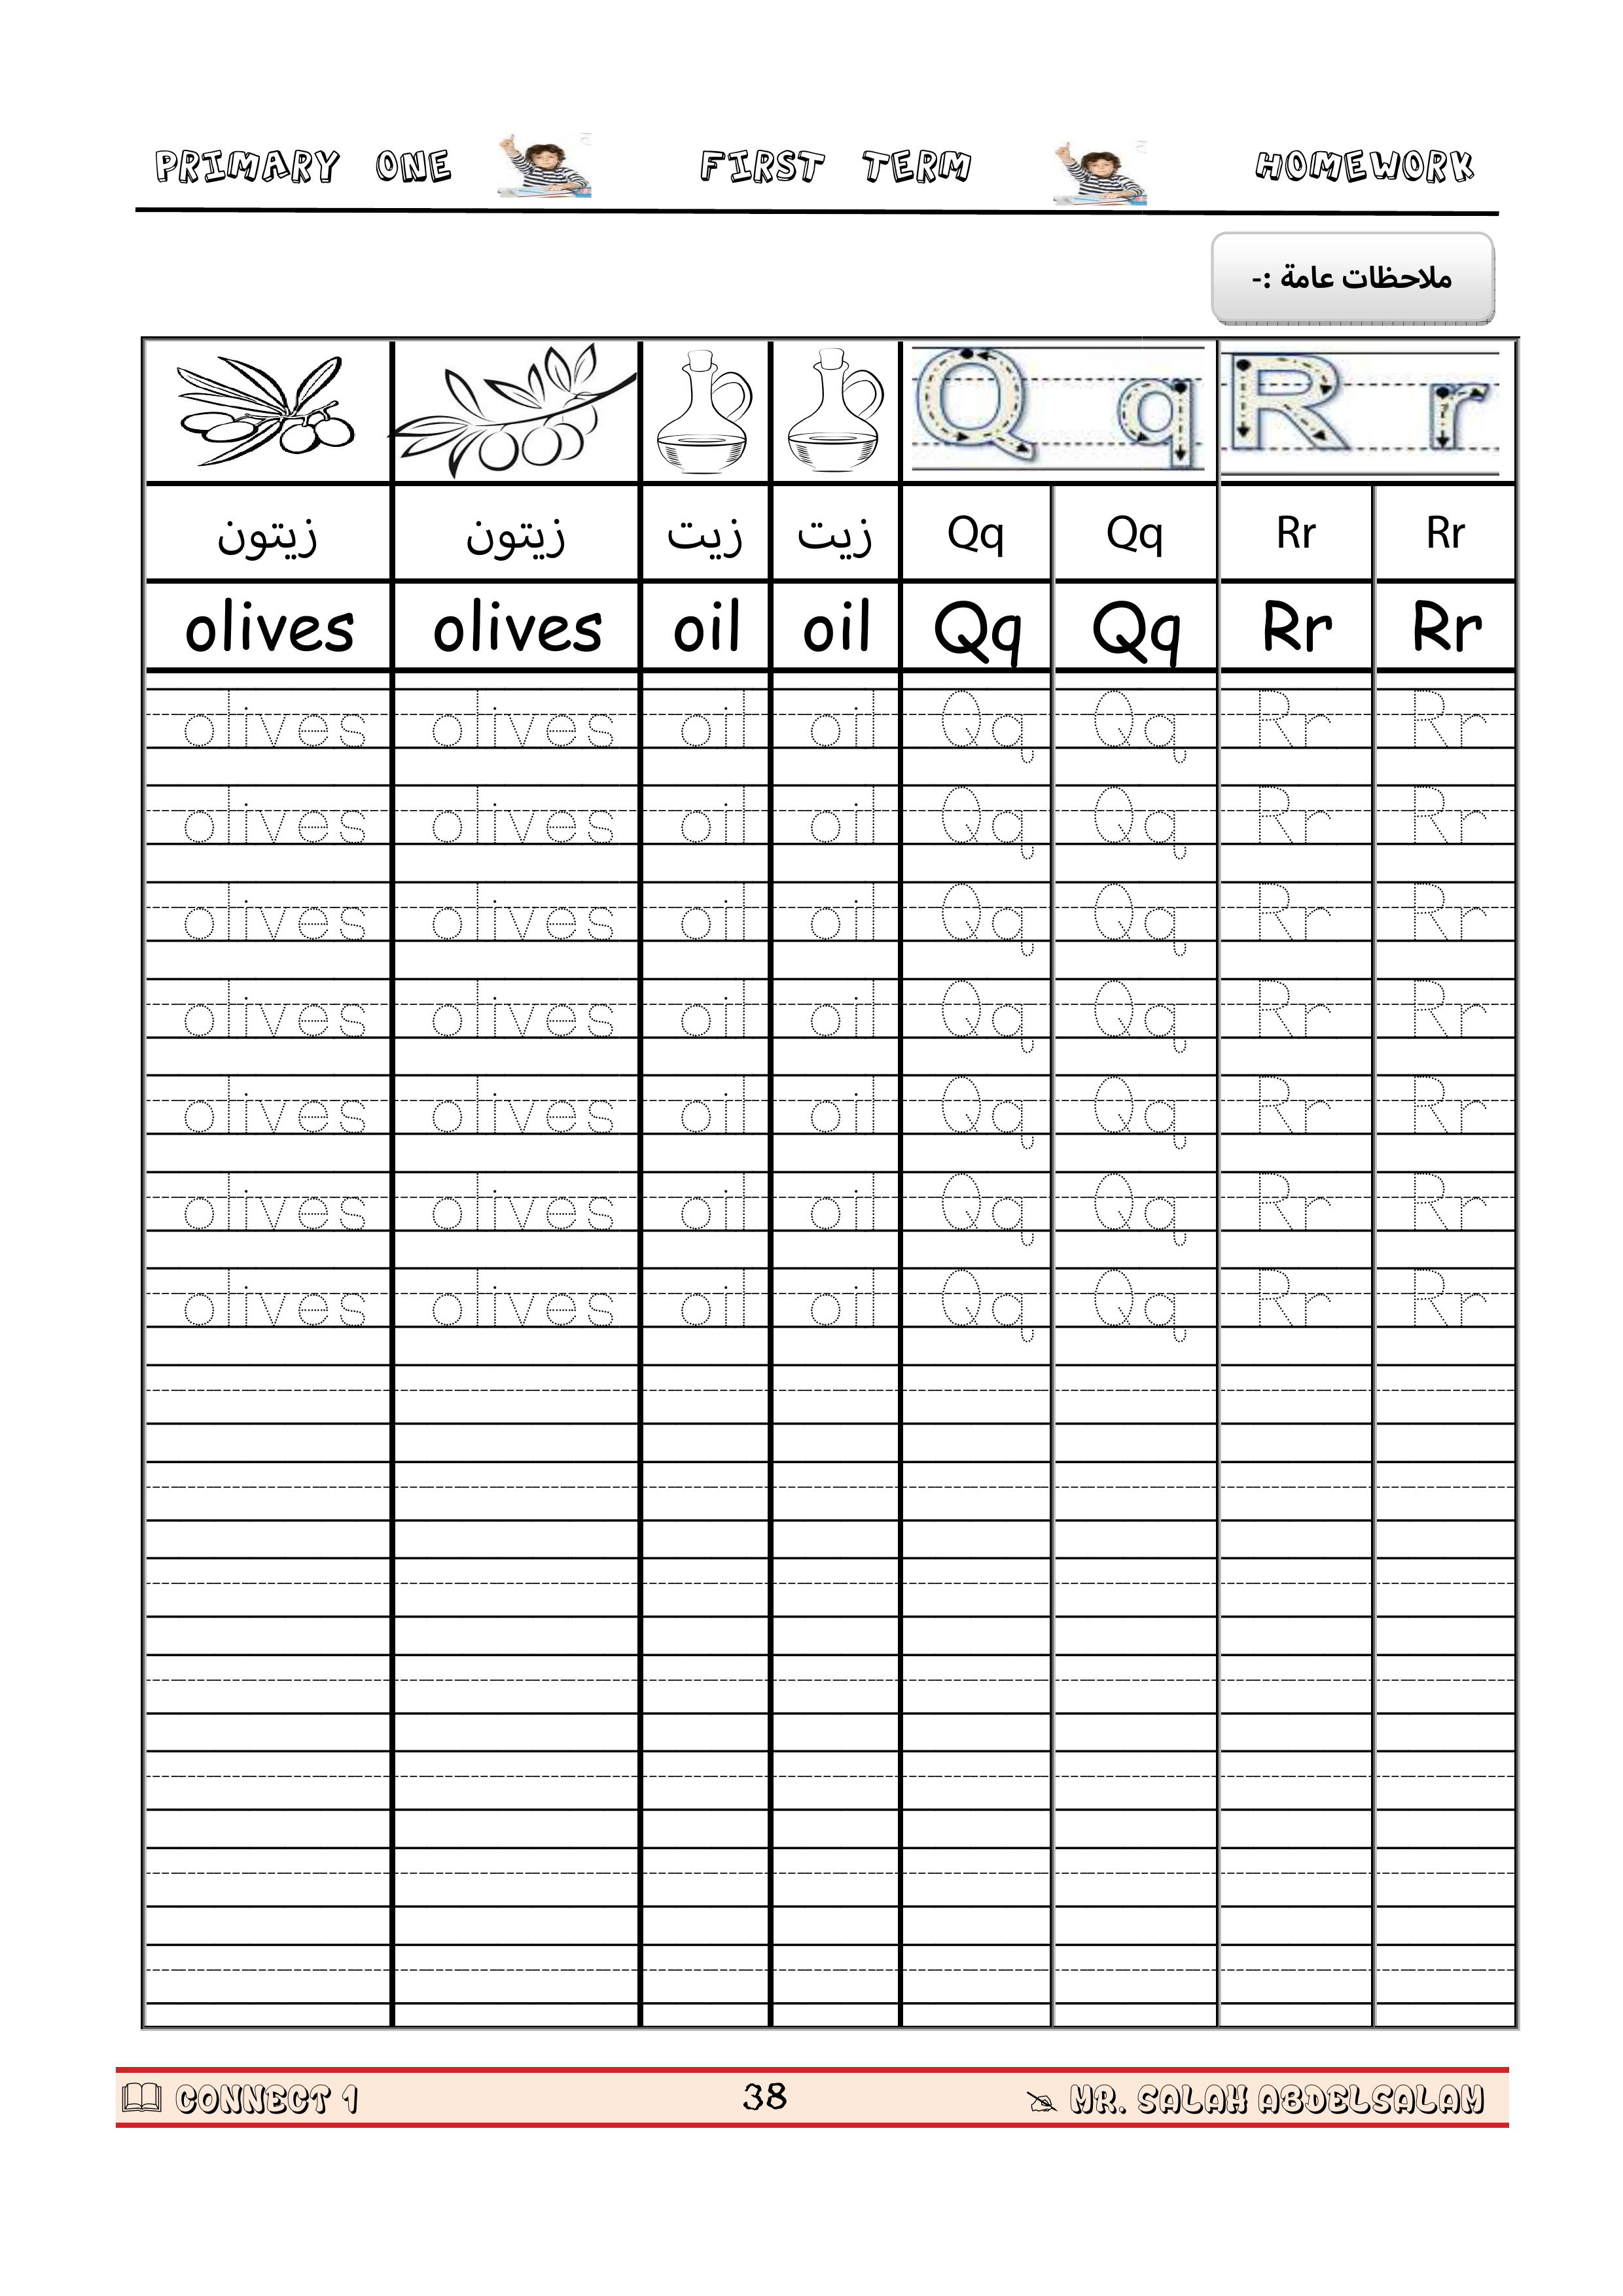 PRIMARY ONE FIRST TERM HOMEWORK
ملاحظات عامة :-
Q q R r
زيتون زيتون زيت زيت Qq Qq Rr Rr
olives olives oil oil Qq Qq Rr Rr
olives olives oil oil Qq Qq Rr Rr
olives olives oil oil Qq Qq Rr Rr
olives olives oil oil Qq Qq Rr Rr
olives olives oil oil Qq Qq Rr Rr
olives olives oil oil Qq Qq Rr Rr
olives olives oil oil Qq Qq Rr Rr
olives olives oil oil Qq Qq Rr Rr
CONNECT 1 38 MR. SALAH ABDELSALAM